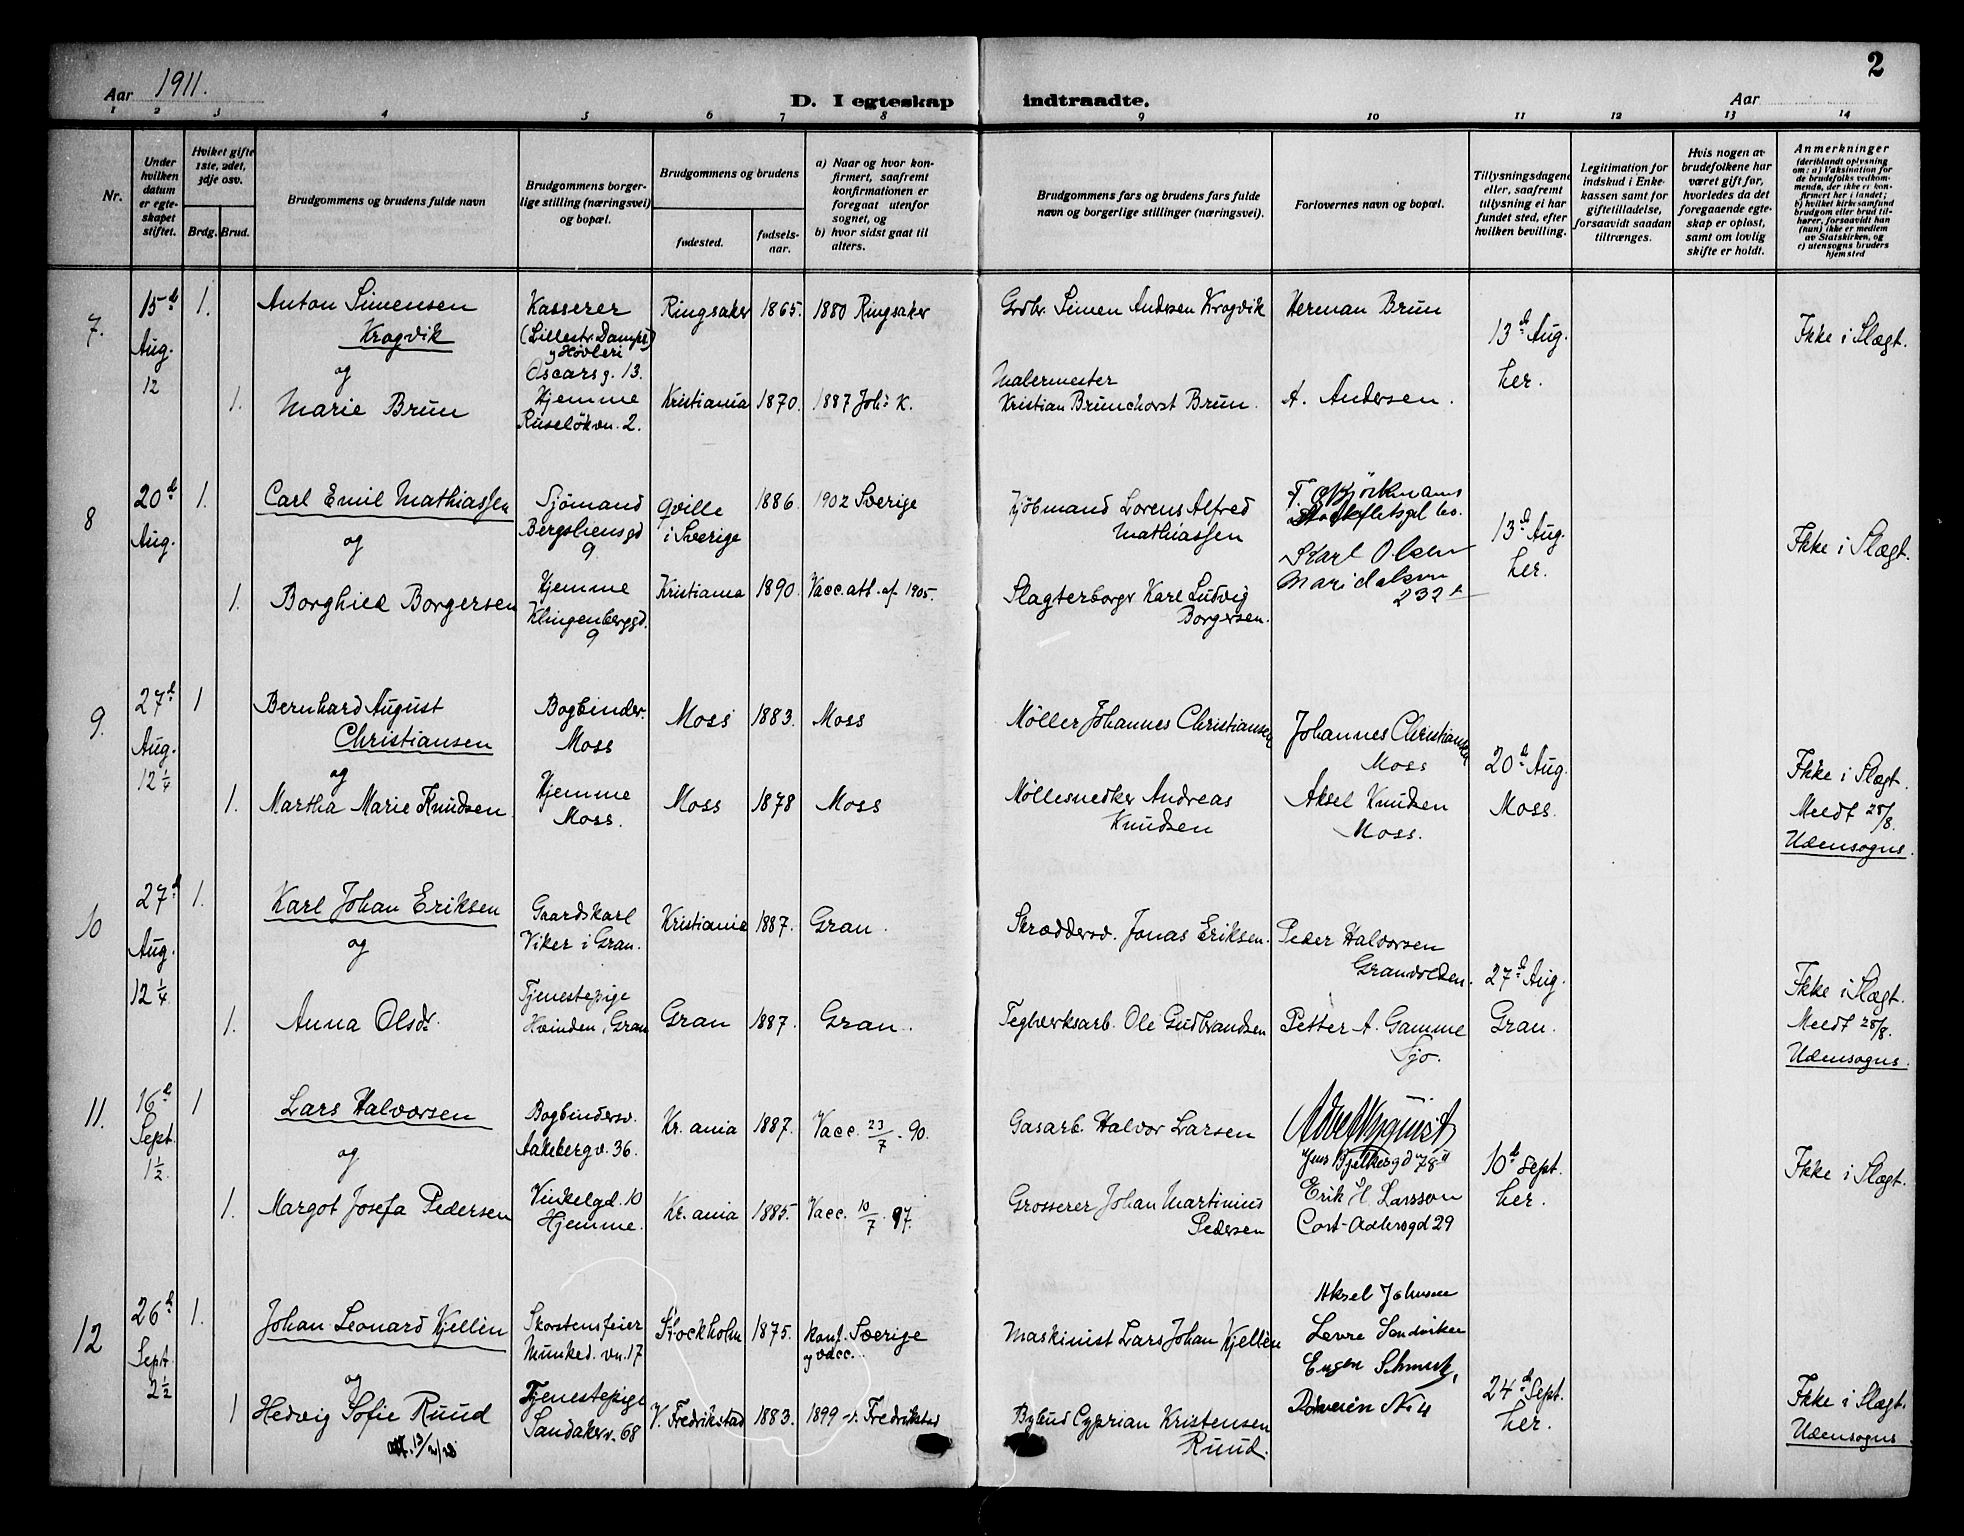 2
Aar 1911.
D. I egteskap indtraadte.
Aar
1 2 3 4 5 6 7 8 9 10 11 12 13 14
Nr.
Under hvilken datum er egteskapet stiftet.
Hvilket gifte 1ste, 2det, 3dje osv.
Brdg. Brud.
Brudgommens og brudens fulde navn
Brudgommens borgerlige stilling (næringsvei) og bopæl.
Brudgommens og brudens
fødested.
fødselsaar.
a) Naar og hvor konfirmert, saafremt konfirmationen er foregaat utenfor sognet, og
b) hvor sidst gaat til alters.
Brudgommens fars og brudens fars fulde navn og borgerlige stillinger (næringsvei).
Forlovernes navn og bopæl.
Tillysningsdagene eller, saafremt tillysning ei har fundet sted, efter hvilken bevilling.
Legitimation for indskud i Enkekassen samt for giftetilladelse, forsaavidt saadan tiltrænges.
Hvis nogen av brudefolkene har været gift før, hvorledes da det foregaaende egteskap er opløst, samt om lovlig skifte er holdt.
Anmerkninger (deriblandt oplysning om: a) Vaksination for de brudefolks vedkommende, der ikke er konfirmert her i landet; b) hvilket kirkesamfund brudgom eller brud tilhører, forsaavidt han (hun) ikke er medlem av Statskirken, og c) utensogns bruders hjemsted
7. 15de Aug. 12
1. Anton Simensen Krogvik
Kasserer (Lillestr. Damps. & Høvleri Oscarsg. 13.
Ringsaker 1865. 1880 Ringsaker
Grdbr. Simen Andersen Krogvik
Herman Brun
13de Aug. her.
Ikke i Slægt.
og
1. Marie Brun
Hjemme Ruseløkvn. 2.
Kristiania 1870. 1887 Joh: K.
Malermester Kristian Brunchorst Brun.
A. Andersen.
8 20de Aug.
1. Carl Emil Mathiassen
Sjömand Bergsliensgd 9
Qville i Sverige 1886 1902 Sverige
Kjøbmand Lorens Alfred Mathiassen
13de Aug. her.
Ikke i Slægt.
og
1. Borghild Borgersen
Hjemme Klingenberggd. 9
Kristiania 1890. Vacc. att. af 1905.
Slagterborgr Karl Ludvig Borgersen.
Karl Olsen Maridalsvn 232
9. 27de Aug. 12 1/4
1 Bernhard August Christiansen
Bogbinder. Moss
Moss 1883. Moss
Møller Johannes Christiansen
Johannes Christiansen Moss
20de Aug. Moss.
Ikke i Slægt. Meldt 28/8. Udensogns.
og
1. Martha Marie Knudsen
Hjemme Moss.
Moss 1878 Moss
Møllesnedker Andreas Knudsen
Aksel Knudsen Moss.
10 27de Aug. 12 1/4
1. Karl Johan Eriksen
Gaardskarl Viker i Gran.
Kristiania 1887. Gran.
Skræddersv. Jonas Eriksen.
Peder Halvorsen Granvolden.
27de Aug. Gran.
Ikke i Slægt. Meldt 28/8. Udensogns.
og
1. Anna Olsdr.
Tjenestepige Hvinden, Gran
Gran 1887. Gran.
Teglverksarb. Ole Gudbrandsen
Petter A. Gamme Sjo.
11. 16de Sept. 1 1/2
1 Lars Halvorsen
Bogbindersv. Aakebergv. 36.
Kr. ania 1887. Vacc. 23/7 - 90.
Gasarb. Halvor Larsen
Jens Bjelkesgd 78 II
10de Sept. her.
Ikke i Slægt.
og
1. Margot Josefa Pedersen
Vinkelgd. 10 Hjemme.
Kr. ania 1885. Vacc. 10/7. 97.
Grosserer Johan Martinius Pedersen
Erik H Larsson Cort-Adlersgd 29
12 26de Sept. 2 1/2
1. Johan Leonard Kjellin
Skorstensfeier Munked. vn. 17
Stockholm 1875. Konf. Sverige og vacc.
Maskinist Lars Johan Kjellèn
Aksel Johnsen
24de Sept. her.
Ikke i Slægt. Udensogns.
og
1 Hedvig Sofie Ruud
Tjenestepige Sandakerv. 68
V. Fredrikstad 1883. 1899 v. Fredrikstad
Bybud Cyprian Kristensen Ruud.